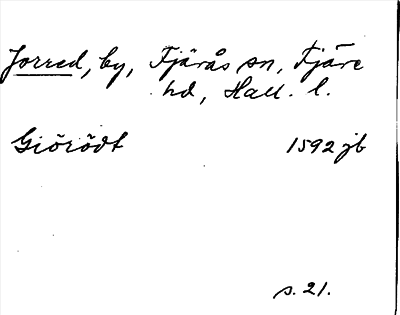 Jorred, by, Fjärås sn, Fjäre
hd, Hall. l.
Giörödt 1592 jb
s. 21.